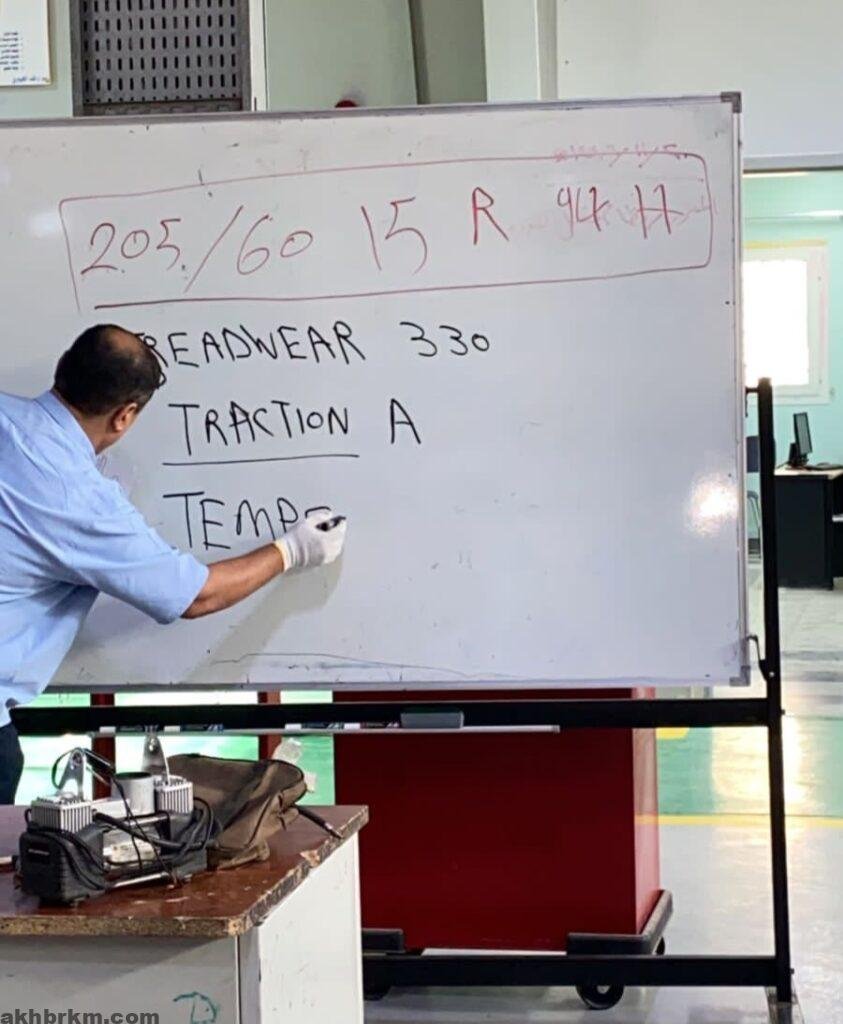 205/60 15 R 94 H
TREADWEAR 330
TRACTION A
TEMPE
akhbrkm.com